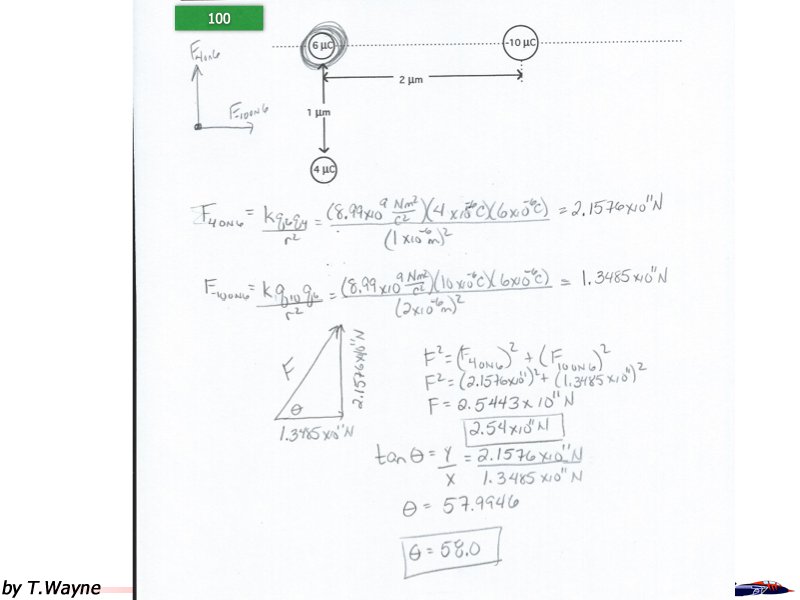 100
6 µC
-10 µC
F4ON6
F-10ON6
2 µm
1 µm
4 µC
F4ON6 = kq6q4 / r² = (8.99x10⁹ Nm²/C²)(4x10⁻⁶C)(6x10⁻⁶C) / (1x10⁻⁶m)² = 2.1576x10¹¹N
F-10ON6 = kq10q6 / r² = (8.99x10⁹ Nm²/C²)(10x10⁻⁶C)(6x10⁻⁶C) / (2x10⁻⁶m)² = 1.3485x10¹¹N
F
θ
2.1576x10¹¹N
1.3485x10¹¹N
F² = (F4ON6)² + (F10ON6)²
F² = (2.1576x10¹¹)² + (1.3485x10¹¹)²
F = 2.5443x10¹¹N
2.54x10¹¹N
tan θ = Y / X = 2.1576x10¹¹N / 1.3485x10¹¹N
θ = 57.9946
θ = 58.0
by T.Wayne